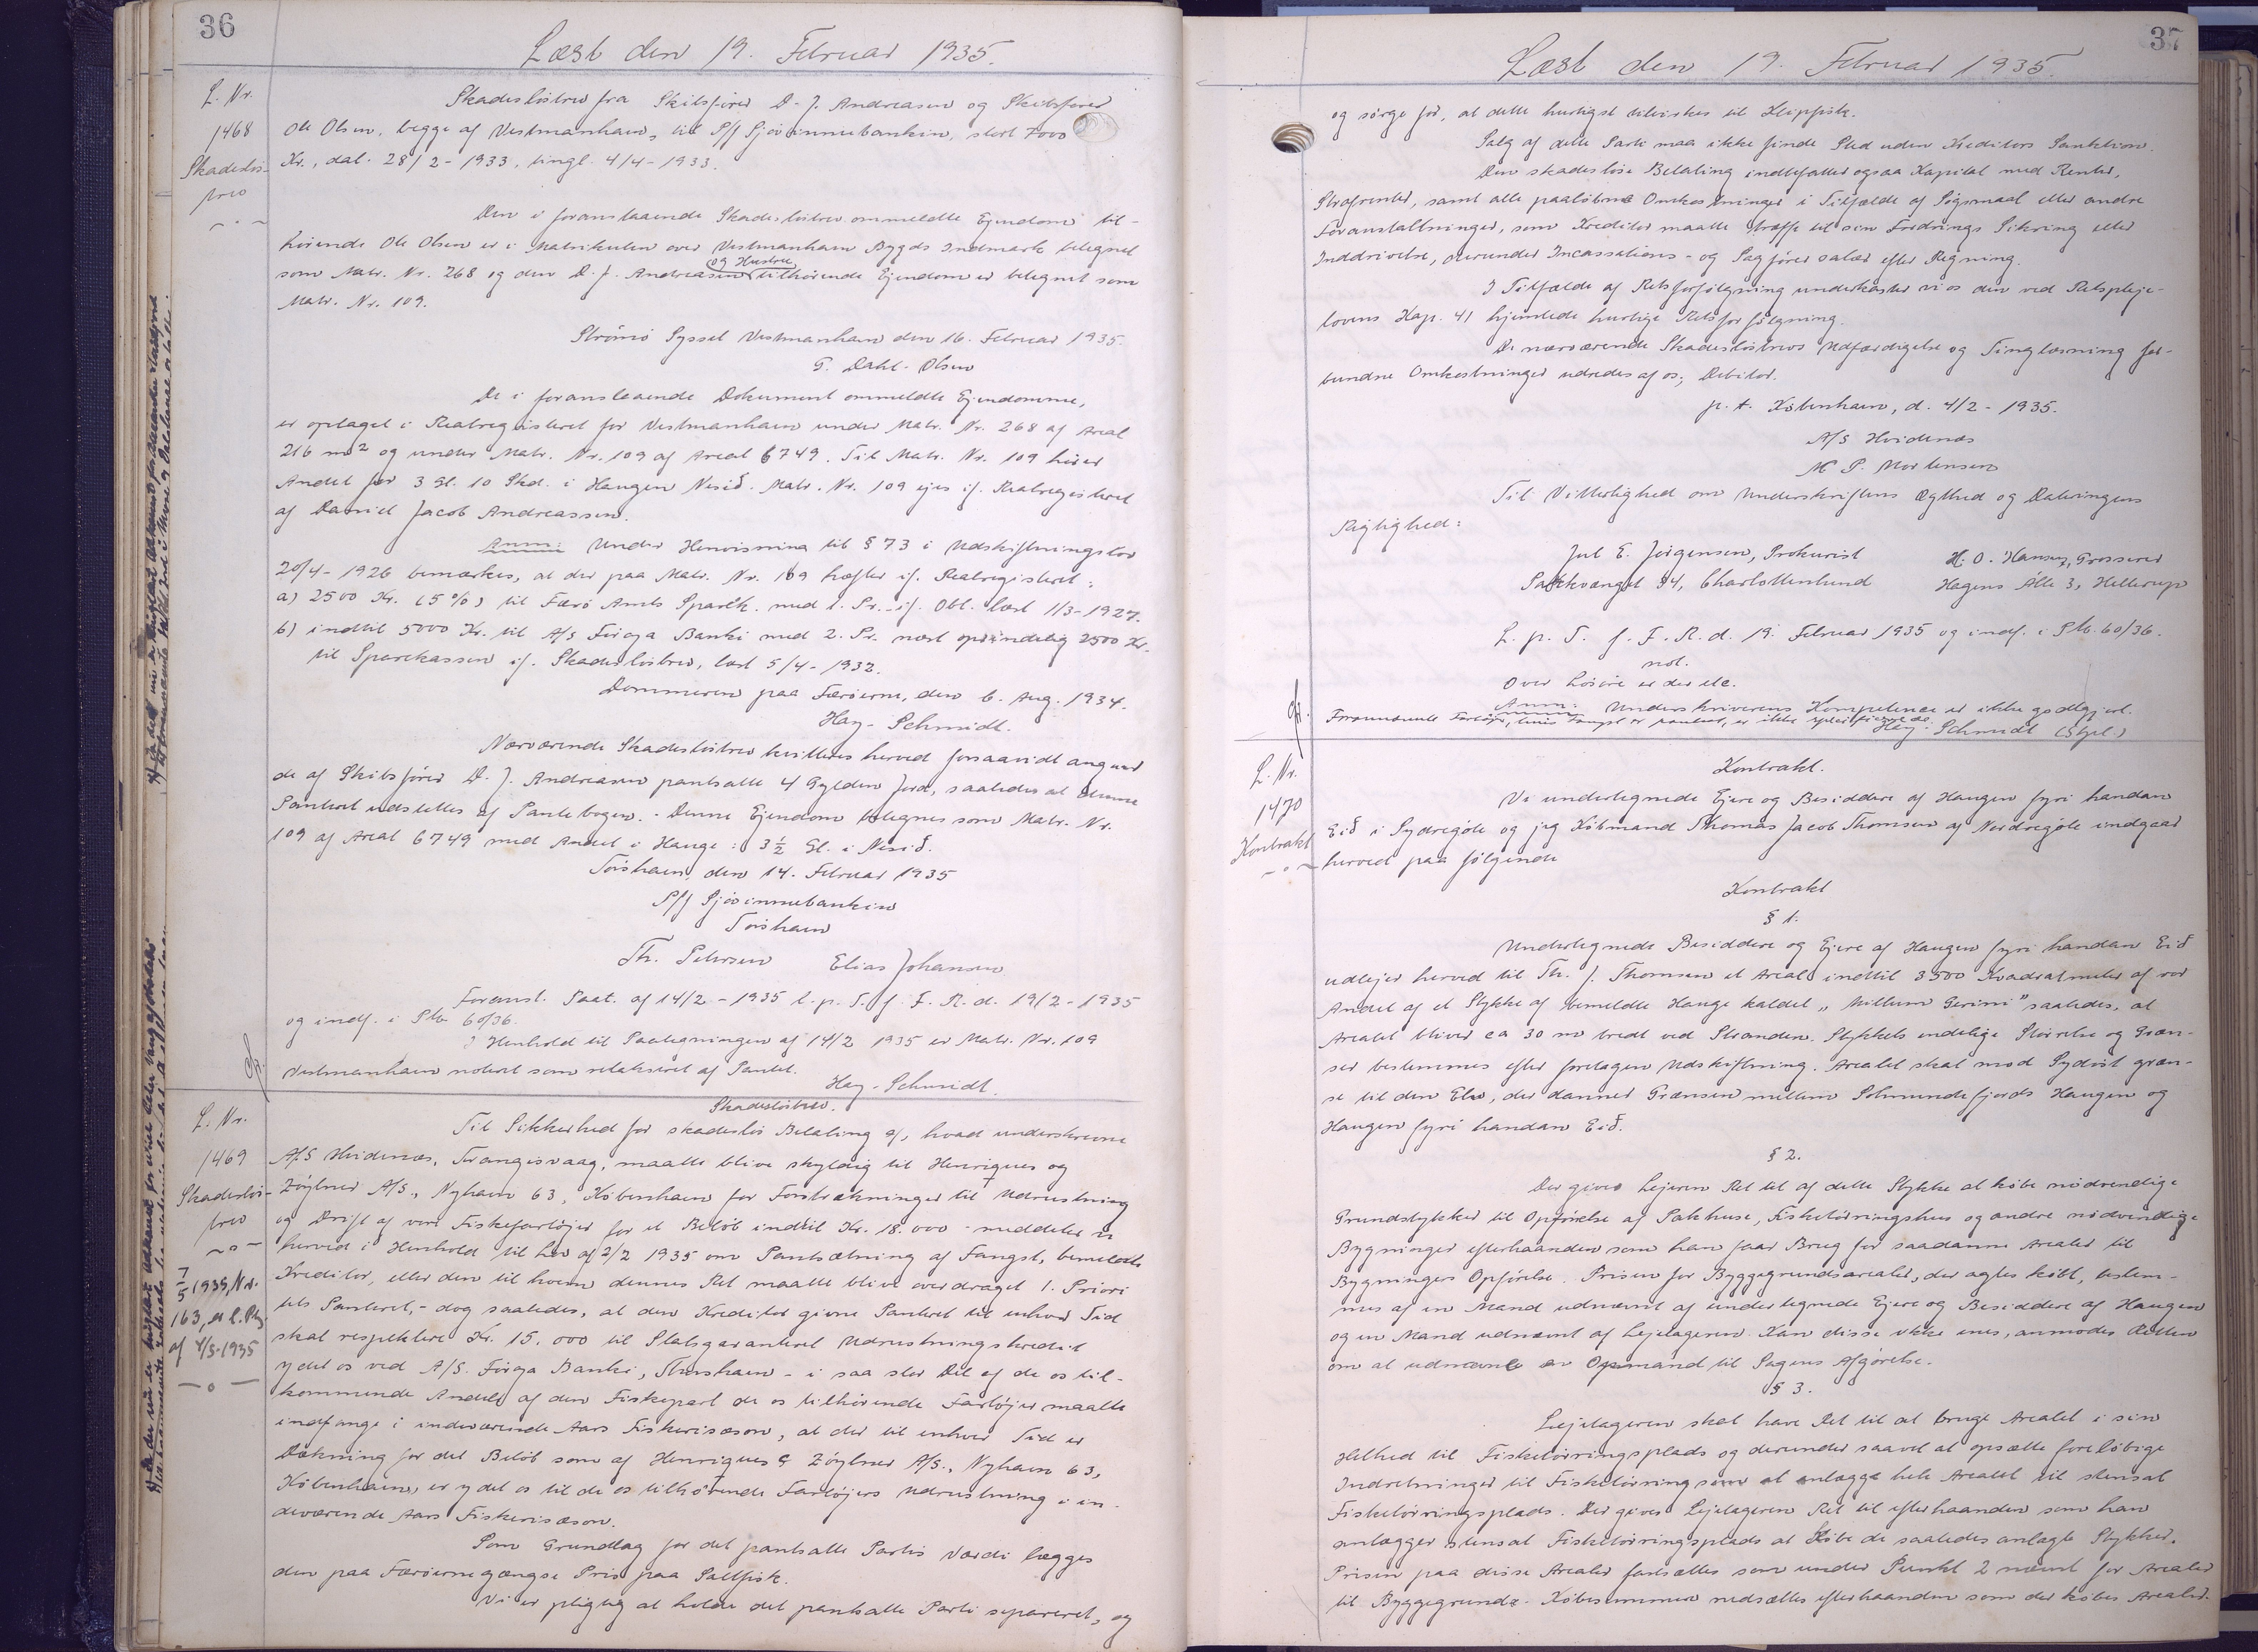 36
Læst den 19. Februar 1935.
L. Nr.
1468
Skadesløs-
brev
Skadesløsbrev fra Skibsfører D. J. Andreasen og Skibsfører
Ole Olsen, begge af Vestmanhavn, til P/f Sjóvinnubankin, stort 7000
Kr., dat. 28/2 - 1933, tingl. 4/4 - 1933.
Den i foranstaaende Skadesløsbrev ommeldte Ejendom til-
hørende Ole Olsen er i Matrikulen over Vestmanhavn Bygds Indmark betegnet
som Matr. Nr. 268 og den D. J. Andreasen og Hustru tilhørende Ejendom er betegnet som
Matr. Nr. 109.
Strømø Syssel Vestmanhavn den 16. Februar 1935.
T. Dahl-Olsen
De i foranstaaende Dokument ommeldte Ejendomme,
er optaget i Realregisteret for Vestmanhavn under Matr. Nr. 268 af Areal
216 m² og under Matr. Nr. 109 af Areal 6749. Til Matr. Nr. 109 hører
Andel for 3 Gl. 10 Skd. i Haugen Nesið. Matr. Nr. 109 ejes if. Realregisteret
af Daniel Jacob Andreassen.
Anm: Under Henvisning til § 73 i Udskiftningslov
20/4 - 1926 bemærkes, at der paa Matr. Nr. 109 hæfter if. Realregisteret:
a) 2500 Kr. (5%) til Færø Amts Spark. med 1. Pr. if. Obl. læst 1/3 - 1927.
b) indtil 5000 Kr. til A/S Føroya Banki med 2. Pr. næst oprindelig 2500 Kr.
til Sparekassen if. Skadesløsbrev, læst 5/4 - 1932.
Dommeren paa Færøerne, den 6. Aug. 1934.
Hay-Schmidt.
Nærværende Skadesløsbrev kvitteres herved forsaavidt angaar
de af Skibsfører D. J. Andreasen pantsatte 4 Gylden Jord, saaledes at denne
Panteret udslettes af Pantebogen. - Denne Ejendom betegnes som Matr. Nr.
109 af Areal 6749 med Andel i Hauge: 3½ Gl. i Nesið.
Tórshavn, den 14. Februar 1935
P/f Sjóvinnubankin
Tórshavn
Th. Petersen Elias Johansen
Foranst. Paat. af 14/2 - 1935 l. p. T. f. F. R. d. 19/2 - 1935
og indf. i Ptb. 60/36.
I Henhold til Paategningen af 14/2 1935 er Matr. Nr. 109
Vestmanhavn noteret som relakseret af Pantet.
Hay-Schmidt.
L. Nr.
1469
Skadesløs-
brev
7/5 1935, Nr.
163, er l. Ptg
af 4/5-1935
Skadesløsbrev.
Til Sikkerhed for skadesløs Betaling af, hvad underskrevne
A/S Hvidenæs, Trangisvaag, maatte blive skyldig til Henriques og
Zøylner A/S., Nyhavn 63, København for Forstrækninger til Udrustning
og Drift af vore Fiskefartøjer for et Beløb indtil Kr. 18.000 - meddeler vi
herved i Henhold til Lov af 2/2 1935 om Pantsætning af Fangst, bemeldte
Kreditor, eller den til hvem dennes Ret maatte blive overdraget 1. Priori
tets Panteret, - dog saaledes, at den Kreditor givne Panteret til enhver Tid
skal respektere Kr. 15.000 til Statsgaranteret Udrustningskredit
ydet os ved A/S. Føroya Banki, Thorshavn - i saa stor Del af de os til-
kommende Andele af den Fiskepart de os tilhørende Fartøjer maatte
indfange i indeværende Aars Fiskerisæson, at der til enhver Tid er
Dækning for det Beløb som af Henriques & Zøylner A/S., Nyhavn 63,
København, er ydet os til de os tilhørende Fartøjers Udrustning i in-
deværende Aars Fiskerisæson.
Som Grundlag for det pantsatte Partis Værdi lægges
den paa Færøerne gængse Pris paa Saltfisk.
Vi er pligtig at holde det pantsatte Parti separeret, og
37
Læst den 19. Februar 1935.
og sørge for, at dette hurtigst tilvirkes til Klipfisk.
Salg af dette Parti maa ikke finde Sted uden Kreditors Sanktion.
Den skadesløse Betaling indbefatter ogsaa Kapital med Renter,
Strafrenter, samt alle paaløbne Omkostninger i Tilfælde af Søgsmaal eller andre
Foranstaltninger, som Kreditor maatte træffe til sin Fordrings Sikring eller
Inddrivelse, derunder Incassations- og Sagførersalær efter Regning.
I Tilfælde af Retsforfølgning underkaster vi os den ved Retspleje-
lovens Kap. 41 hjemlede hurtige Retsforfølgning.
De nærværende Skadesløsbrevs Udfærdigelse og Tinglæsning for-
bundne Omkostninger udredes af os, Debitor.
p. t. København, d. 4/2 - 1935.
A/S Hvidenæs
M P. Mortensen
Til Vitterlighed om Underskriftens Ægthed og Dateringens
Rigtighed:
Jul E. Jørgensen, Prokurist H. O. Hansen, Grosserer
Parkvænget 34, Charlottenlund Hagens Alle 3, Hellerup
L. p. T. f. F. R. d. 19. Februar 1935 og indf. i Ptb. 60/36.
not.
Over Løsøre er der etc.
Anm: Underskriverens Kompetence er ikke godtgjort.
Forannævnte Fartøjer, hvis Fangst er pantsat, er ikke specificerede.
Hay-Schmidt (Stpl.)
L. Nr.
1470
Kontrakt
Kontrakt.
Vi undertegnede Ejere og Besiddere af Haugen fyri handan
Eið i Sydregøte og jeg Købmand Thomas Jacob Thomsen af Nordregøte indgaar
herved paa følgende
Kontrakt
§ 1.
Undertegnede Besiddere og Ejere af Haugen fyri handan Eið
udlejer herved til Th. J. Thomsen et Areal indtil 3500 Kvadratmeter af vor
Andel af et Stykke af bemeldte Hauge kaldet „Millum Gerini” saaledes, at
Arealet bliver ca 30 m bredt ved Stranden. Stykkets endelige Størrelse og Græn-
ser bestemmes efter foretagen Udskiftning. Arealet skal mod Sydøst græn-
se til den Elv, der danner Grænsen mellem Sølmundefjords Haugen og
Haugen fyri handan Eið.
§ 2.
Der gives Lejeren Ret til af dette Stykke at købe nødvendige
Grundstykker til Opførelse af Pakhuse, Fisketørringshus og andre nødvendige
Bygninger efterhaanden som han faar Brug for saadanne Arealer til
Bygningers Opførelse. Prisen for Byggegrundsarealer, der agtes købt, bestem-
mes af en Mand udnævnt af undertegnede Ejere og Besiddere af Haugen
og en Mand udnævnt af Lejetageren. Kan disse ikke enes, anmodes Retten
om at udnævne en Opmand til Sagens Afgørelse.
§ 3.
Lejetageren skal have Ret til at bruge Arealet i sin
Helhed til Fisketørringsplads og derunder saavel at opsætte foreløbige
Indretninger til Fisketørring som at anlægge hele Arealet til stensat
Fisketørringsplads. Der gives Lejetageren Ret til efterhaanden som han
anlægger stensat Fisketørringsplads at købe de saaledes anlagte Stykker.
Prisen paa disse Arealer fastsættes som under Punkt 2 nævnt for Arealer
til Byggegrunde. Købesummen nedsættes efterhaanden som der købes Arealer.